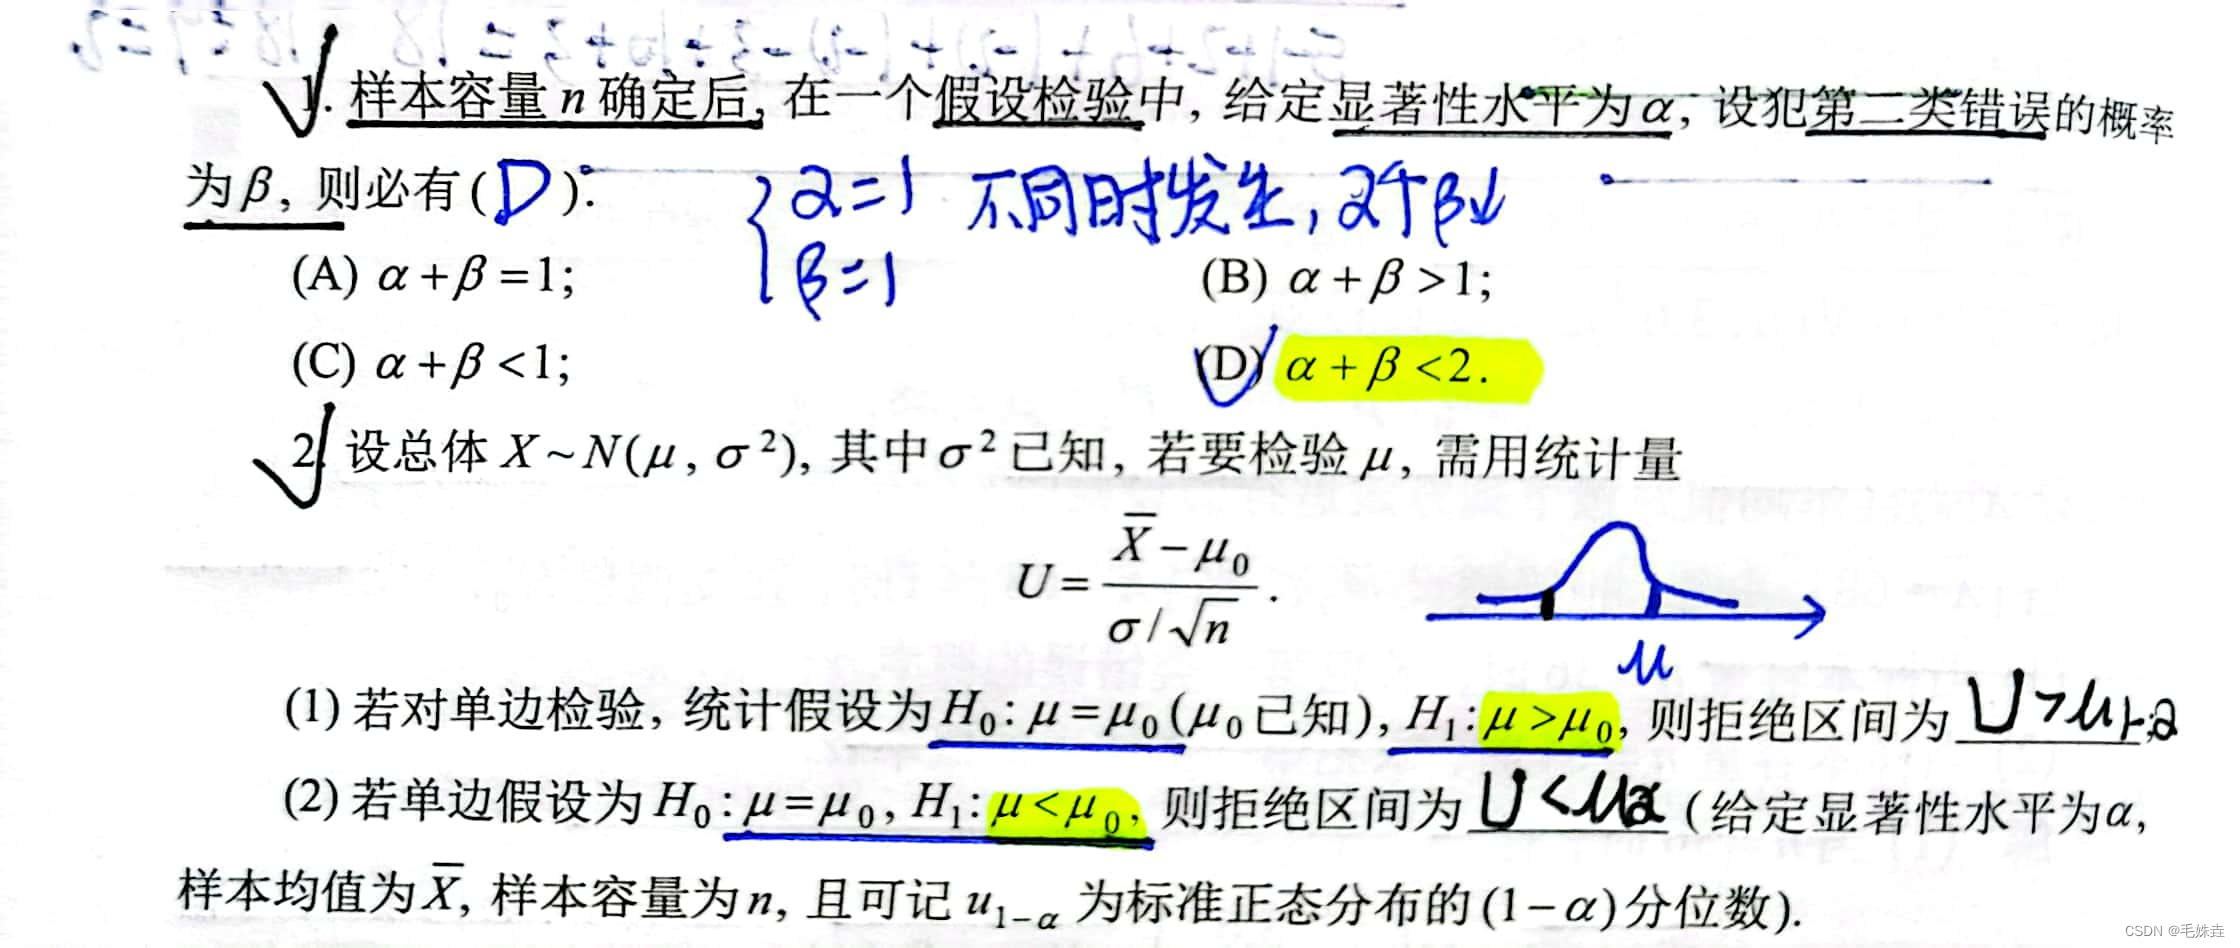 1. 样本容量 n 确定后, 在一个假设检验中, 给定显著性水平为 α, 设犯第二类错误的概率
为 β, 则必有( D ).
{ α=1 不同时发生, α个 β↓
β=1
(A) α + β = 1; (B) α + β > 1;
(C) α + β < 1; (D) α + β < 2.
2. 设总体 X ~ N(μ, σ²), 其中 σ² 已知, 若要检验 μ, 需用统计量
U = (X̄ − μ₀) / (σ/√n) .
μ
(1) 若对单边检验, 统计假设为 H₀: μ = μ₀ (μ₀ 已知), H₁: μ > μ₀, 则拒绝区间为 U > μ₁₋α;
(2) 若单边假设为 H₀: μ = μ₀, H₁: μ < μ₀, 则拒绝区间为 U < μα (给定显著性水平为 α,
样本均值为 X̄, 样本容量为 n, 且可记 u₁₋α 为标准正态分布的 (1−α) 分位数).
CSDN @毛姝垚